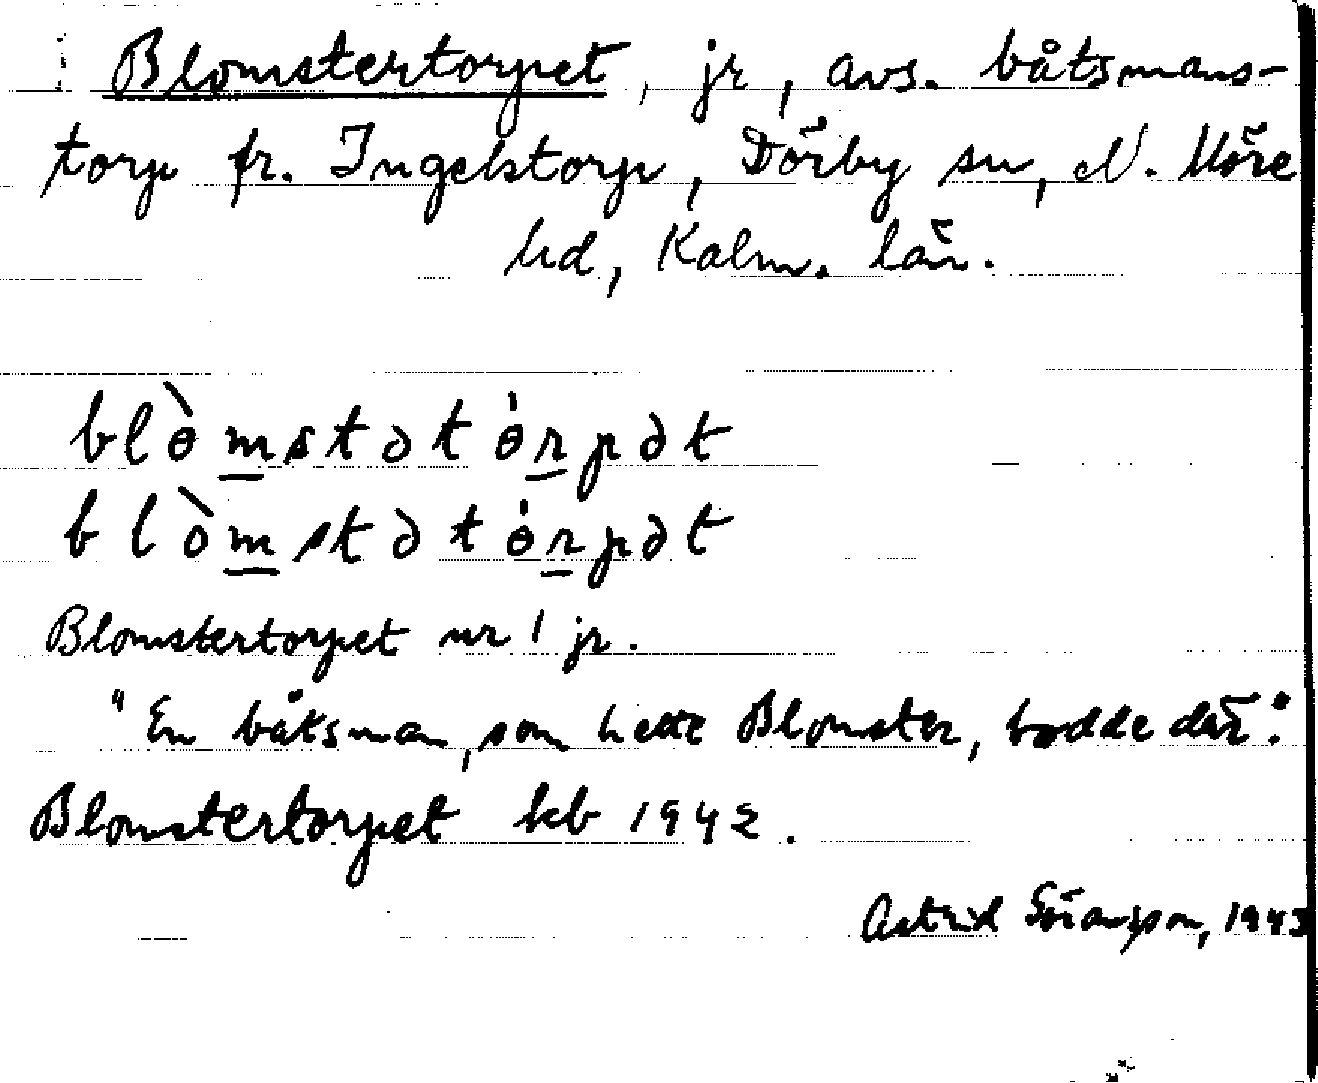 Blomstertorpet, jr, avs. båtsmans-
torp fr. Ingelstorp, Dörby sn, N. Möre
hd, Kalm. län.
blɵ̀mstətɵ́rpət
blòmstətɵ́rpət
Blomstertorpet nr 1 jr.
"En båtsman, som hette Blomster, bodde där".
Blomstertorpet kb 1942.
Astrid Göransson, 1943